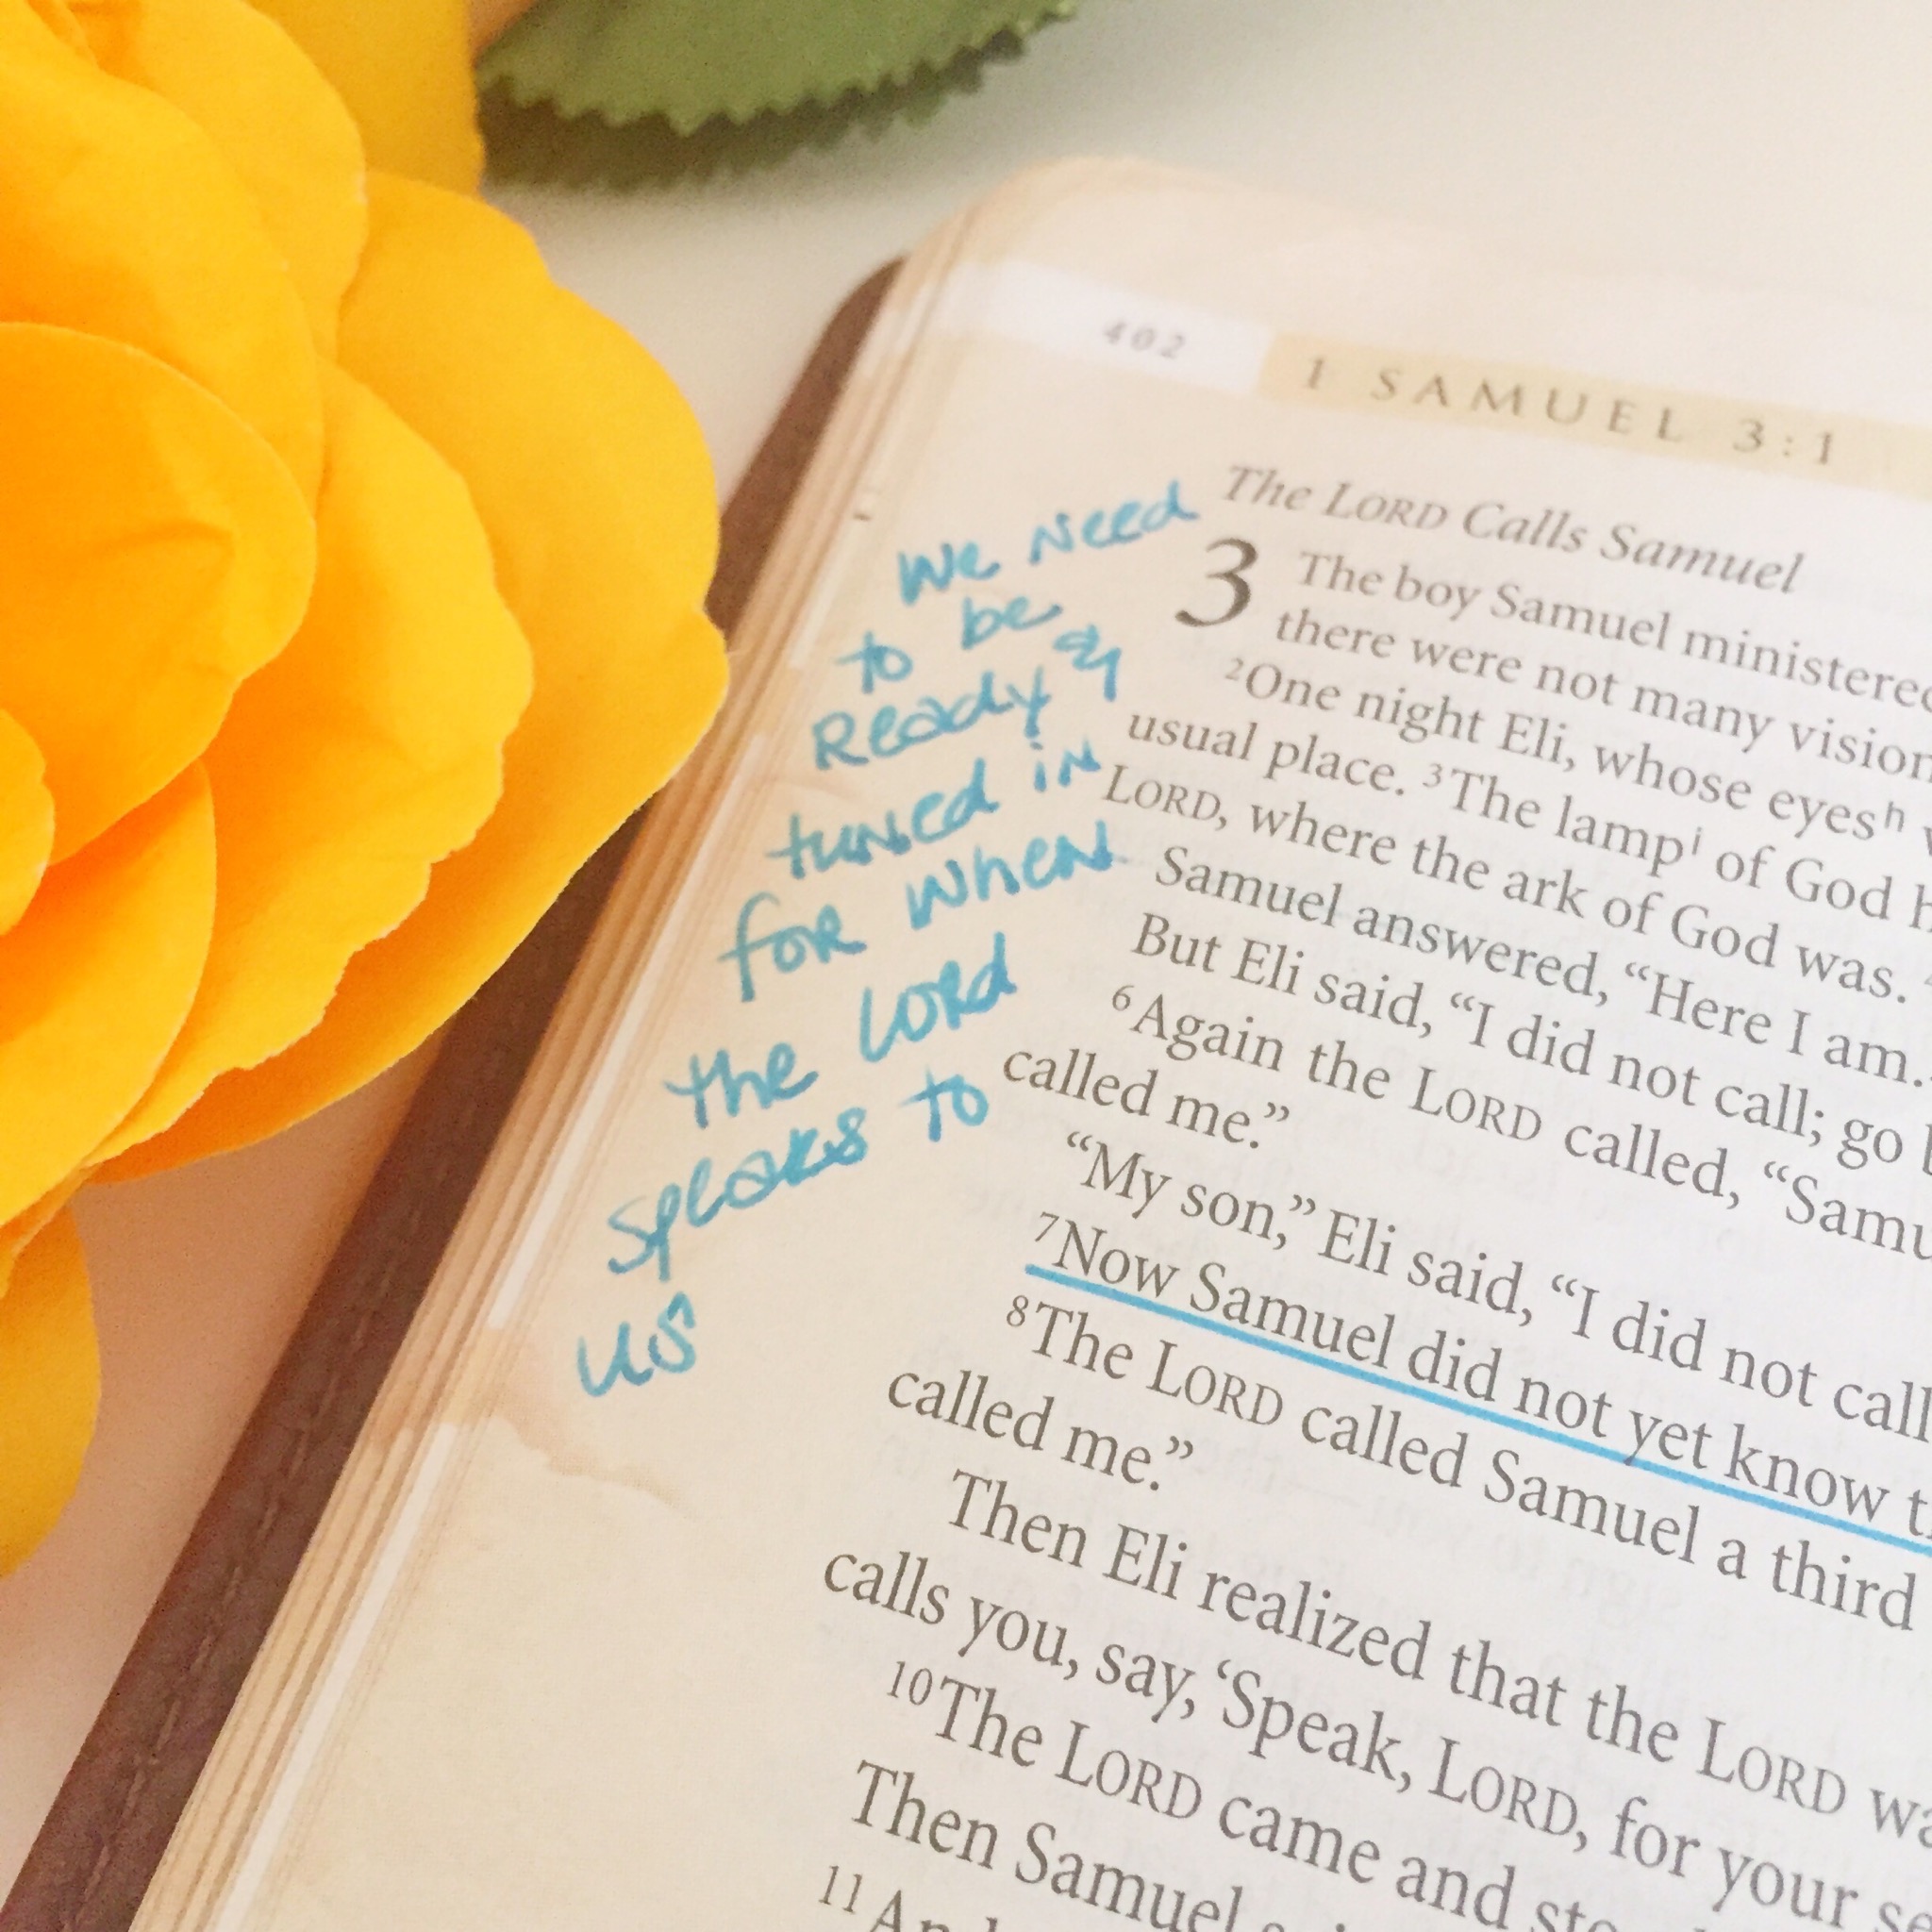 402
1 SAMUEL 3:1
we need
to be
Ready &
tuned in
for when
the Lord
speaks to
us
The LORD Calls Samuel
3 The boy Samuel ministered
there were not many vision
²One night Eli, whose eyesʰ
usual place. ³The lampⁱ of God
LORD, where the ark of God was.
Samuel answered, “Here I am.
But Eli said, “I did not call; go
⁶Again the LORD called, “Samu
called me.”
“My son,” Eli said, “I did not call
⁷Now Samuel did not yet know
⁸The LORD called Samuel a third
called me.”
Then Eli realized that the LORD wa
calls you, say, ‘Speak, LORD, for your se
¹⁰The LORD came and sto
Then Samuel
¹¹An